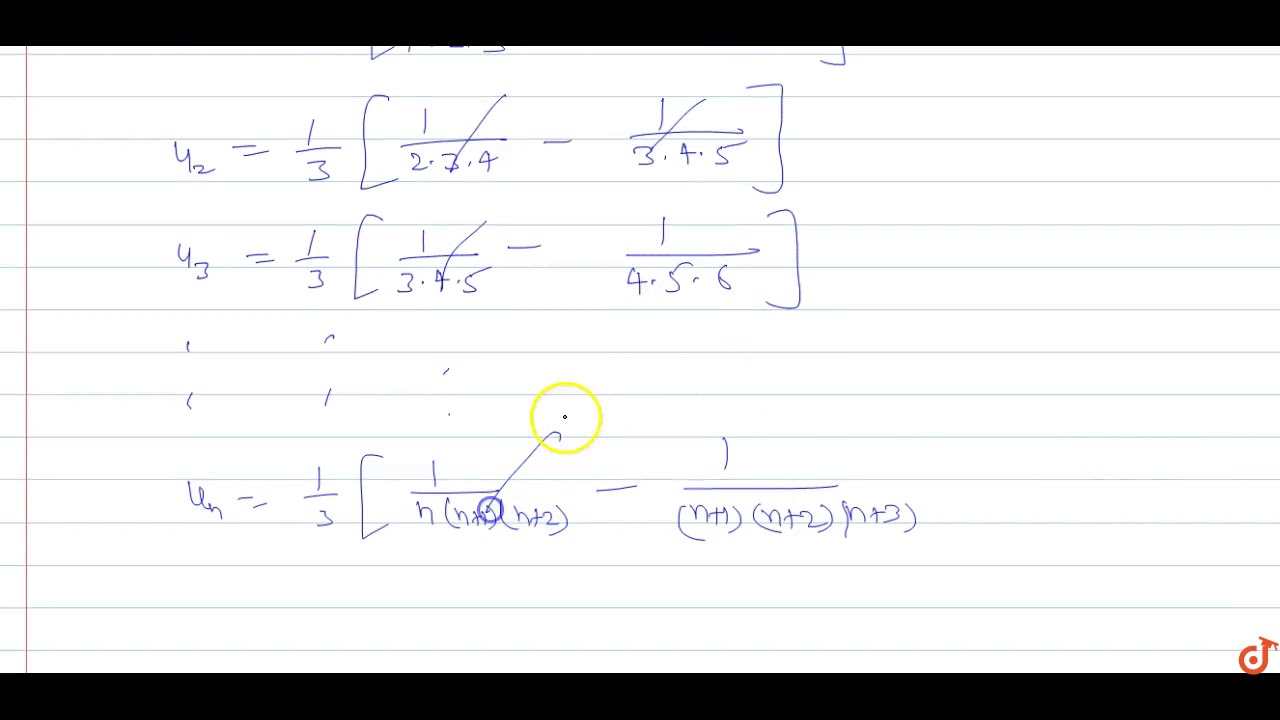 u₂ = 1/3 [ 1/(2·3·4) − 1/(3·4·5) ]
u₃ = 1/3 [ 1/(3·4·5) − 1/(4·5·6) ]
uₙ = 1/3 [ 1/(n(n+1)(n+2)) − 1/((n+1)(n+2)(n+3))